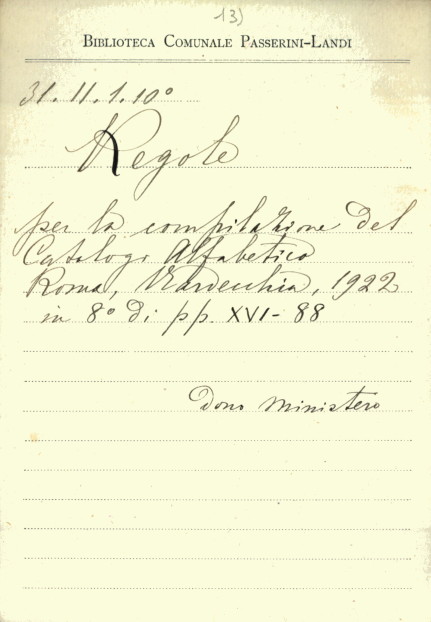 13)
BIBLIOTECA COMUNALE PASSERINI-LANDI
31.11.1.10°
Regole
per la compilazione del
Catalogo Alfabetico
Roma, Vardecchia, 1922
in 8° di pp. XVI-88
Dono Ministero